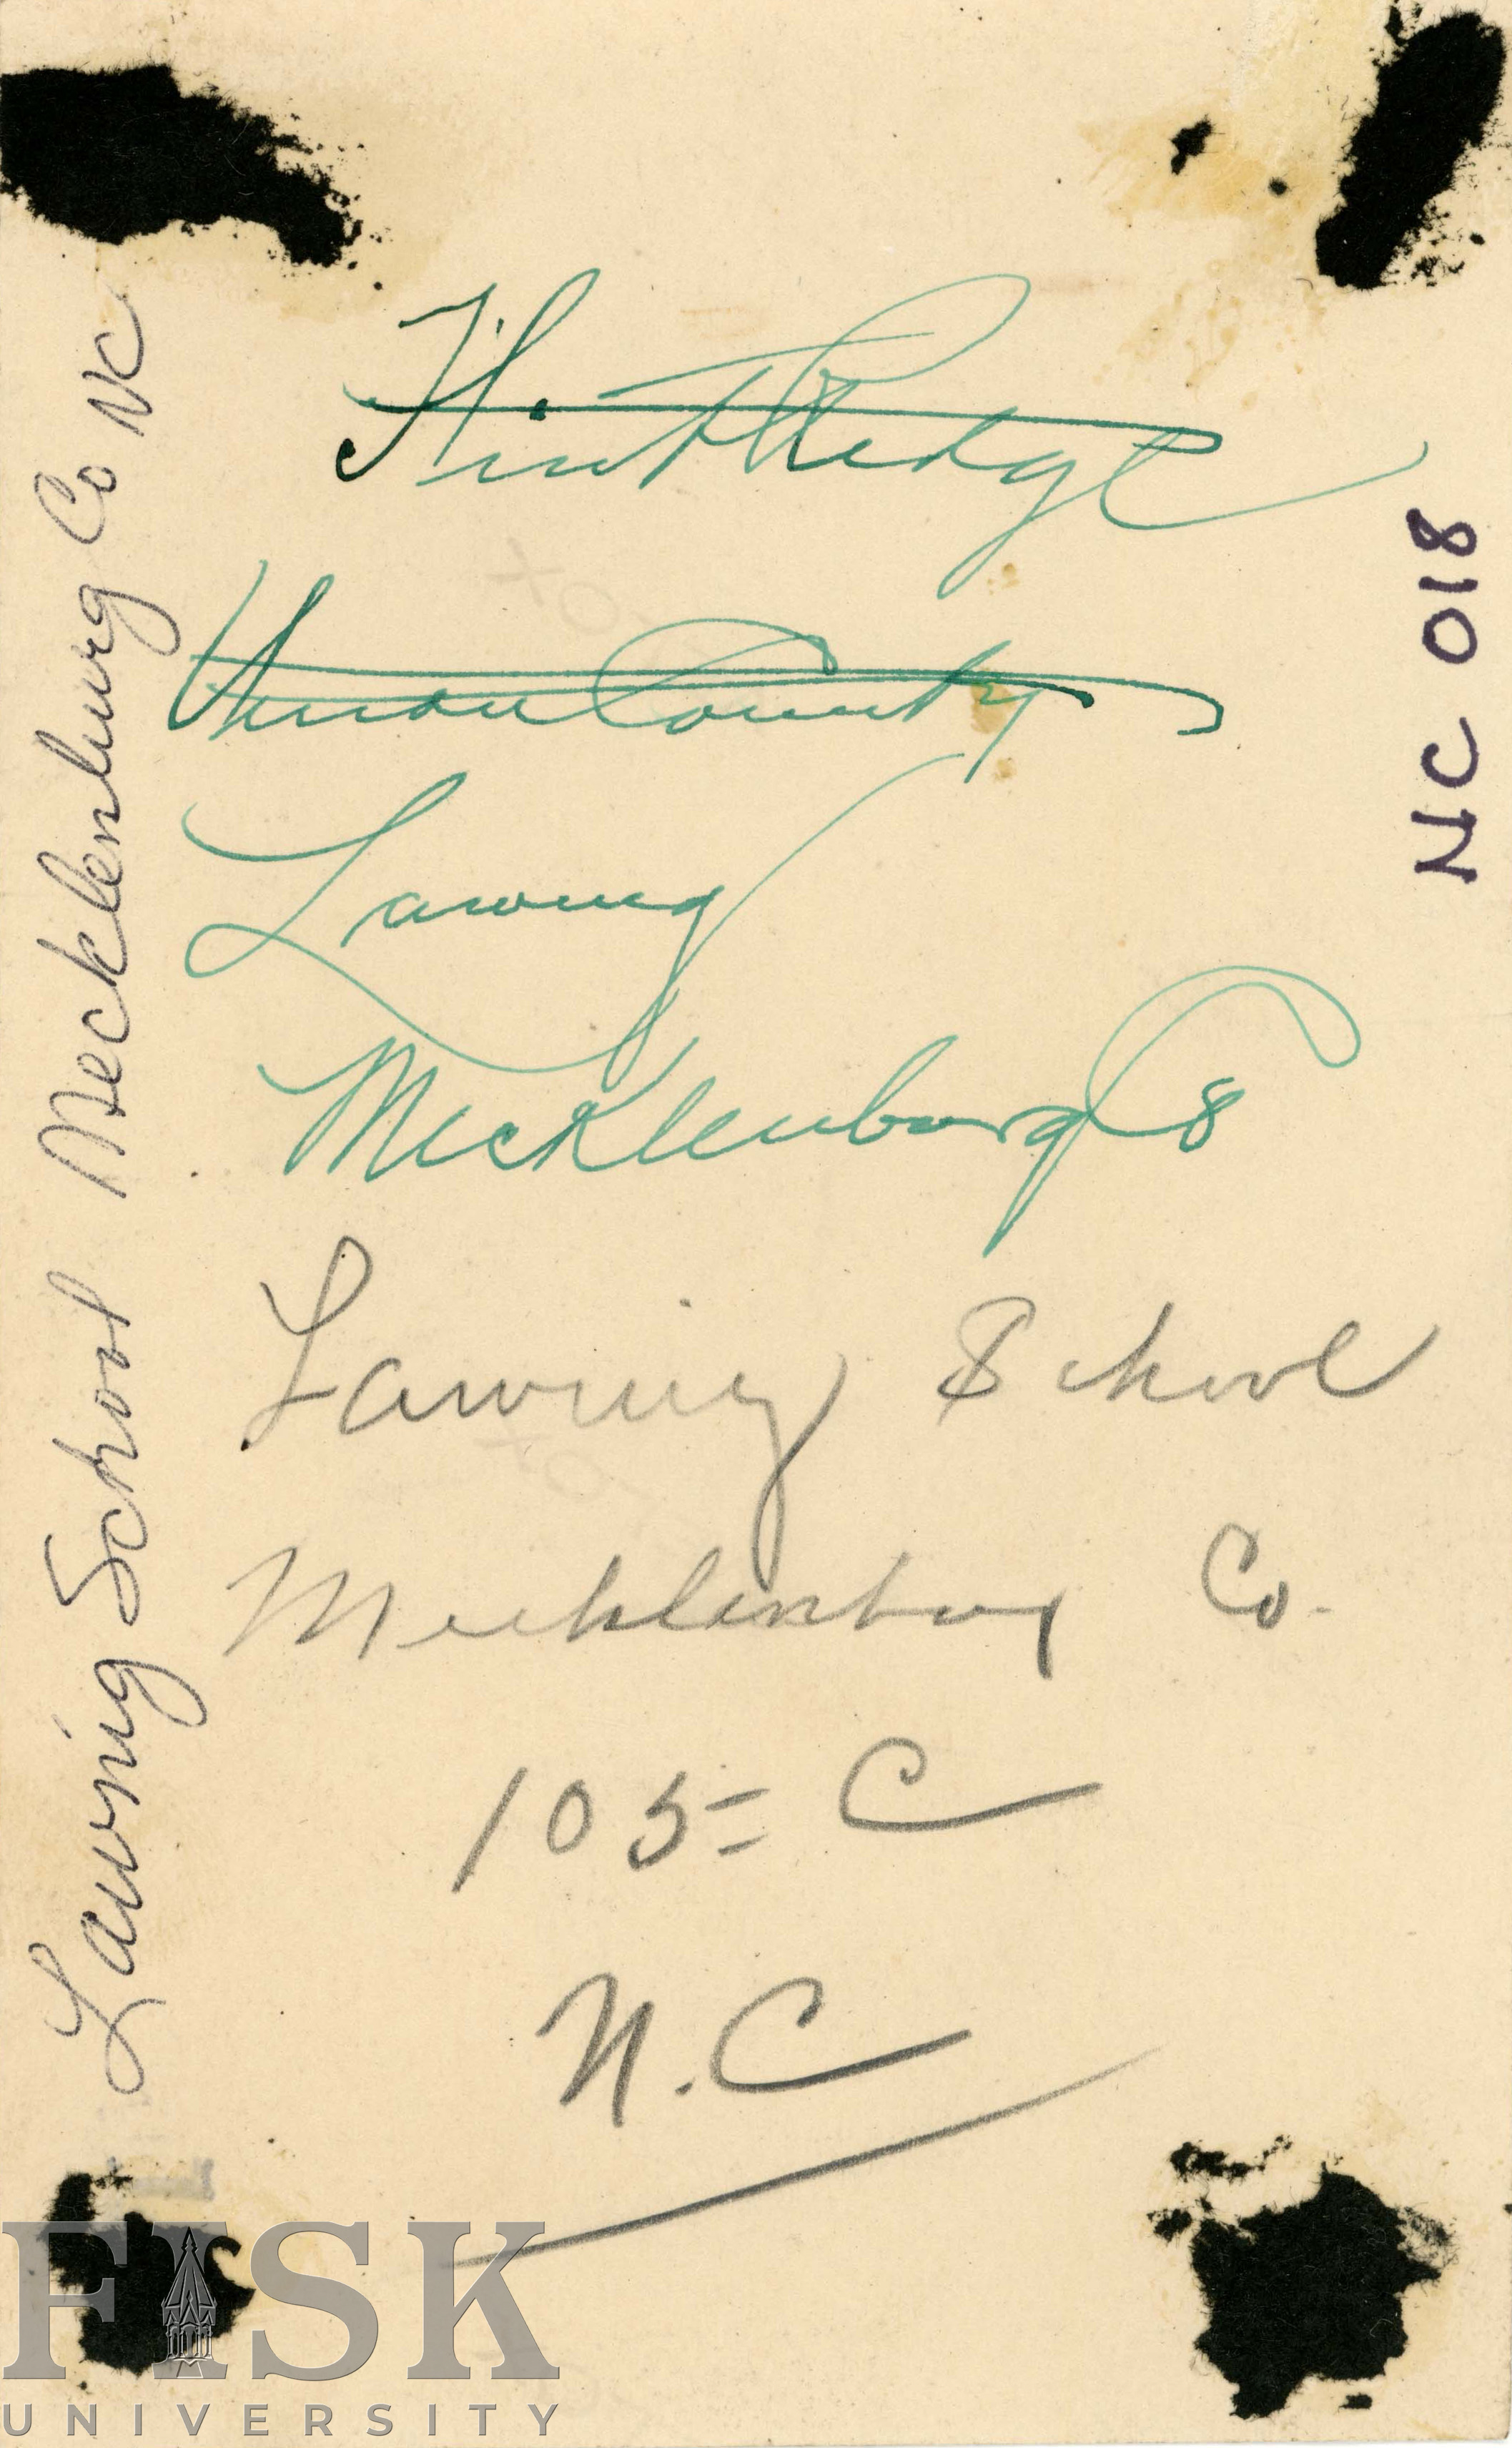 Flint Ridge
Union County
Lawing
Mecklenburg Co
Lawing School
Mecklenburg Co.
105 = C
N.C
Lawing School Mecklenburg Co NC
NC 018
FISK
UNIVERSITY